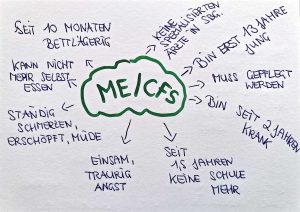 SEIT 10 MONATEN
BETTLÄGERIG
KEINE
SPEZIALISIERTEN
ÄRZTE IN SBG.
BIN ERST 13 JAHRE
JUNG
KANN NICHT
MEHR SELBST
ESSEN
ME/CFS
MUSS GEPFLEGT
WERDEN
BIN SEIT 2 JAHREN
KRANK
STÄNDIG
SCHMERZEN,
ERSCHÖPFT, MÜDE
EINSAM,
TRAURIG
ANGST
SEIT
1,5 JAHREN
KEINE SCHULE
MEHR